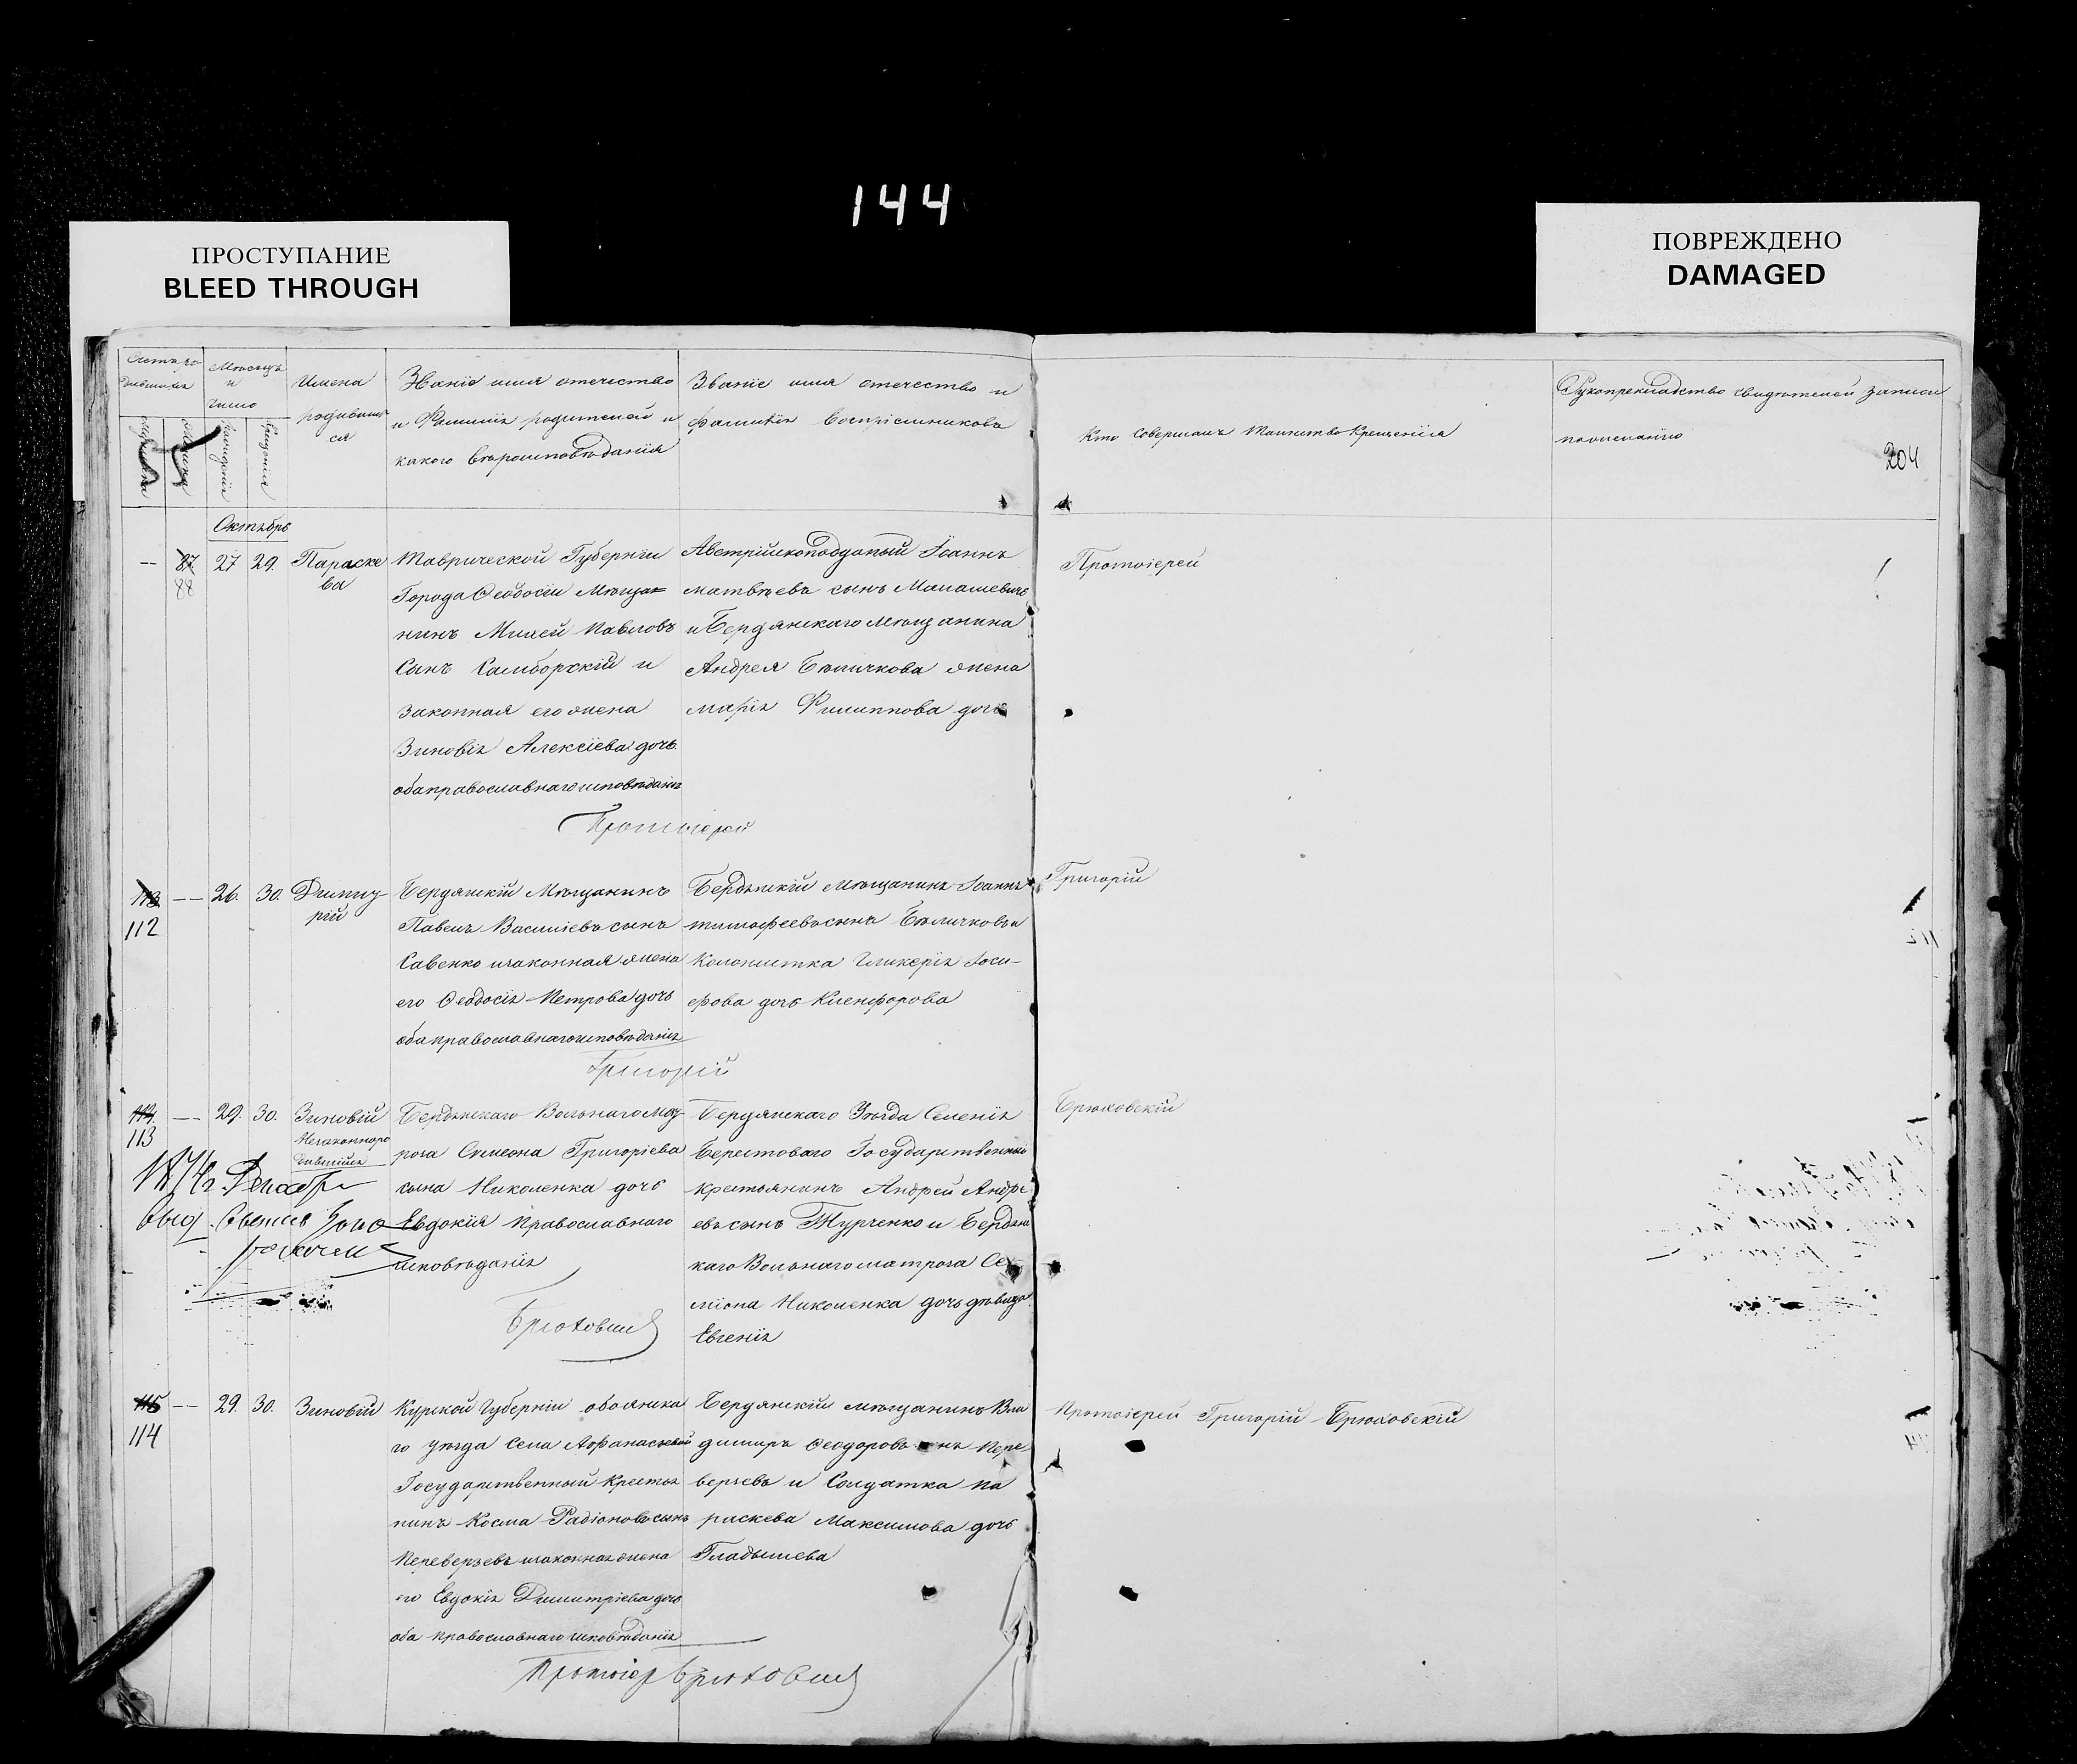 144
ПРОСТУПАНИЕ
BLEED THROUGH
ПОВРЕЖДЕНО
DAMAGED
Мѣсяцъ
и
число
Имена
родивших
ся
Званіе имя отечество
и Фамилія родителей и
какого вѣроисповѣданія
Званіе имя отечество и
фамилія воспріемниковъ
Кто совершалъ таинство Крещенія
Рукоприкладство свидѣтелей записи
204
Октябрь
87
88
27 29.
Параске
ва
Таврической Губерніи
Города Ѳеодосіи Мѣща=
нинъ Михей Павловъ
Сынъ Самборскій и
законная его жена
Зиновія Алексіева дочь
оба православнаго исповѣданія
Австрійскоподданый Іоаннъ
матвѣевъ сынъ
и Бердянскаго мѣщанина
Андрея Бѣличкова жена
марія Филиппова дочь
Протоіерей
Протоіерей
112
26. 30.
Дими
рій
Бердянскій Мѣщанинъ
Павелъ Василіевъ сынъ
Савенко изаконная жена
его Ѳеодосія Петрова дочь
оба православнаго исповѣданія
Бердянскій мѣщанинъ Іоаннъ
тимофеевъ сынъ Бѣличковъ и
Колонистка Гликерія Іоси-
фова дочь
Григорій
Григорій
113
29. 30.
Зиновій
Незаконноро
Бердянскаго Вольнаго мат
роза Симеона Григоріева
сына Николенка дочь
Евдокія православнаго
исповѣданія
Бердянскаго Уѣзда Селенія
Берестоваго Государственный
крестьянинъ Андрей Андре
евъ сынъ Турченко и Бердянс
каго Вольнаго матроза Се
міона Николенка дочь дѣвица
Евгенія
Брюховскій
114
29. 30.
Зиновій
Курской Губерніи обоянска
го уѣзда села Афанасьевой
Государственный Крестья
нинъ Косма Радіоновъ сынъ
Переверзевъ изаконная жена
его Евдокія Димитріева дочь
оба православнаго исповѣданія
Бердянскій мѣщанинъ Вла
димиръ Ѳеодоровъ сынъ Пере
верзевъ и Солдатка Па
раскева Максимова дочь
Гладышева
Протоіерей Григорій Брюховскій